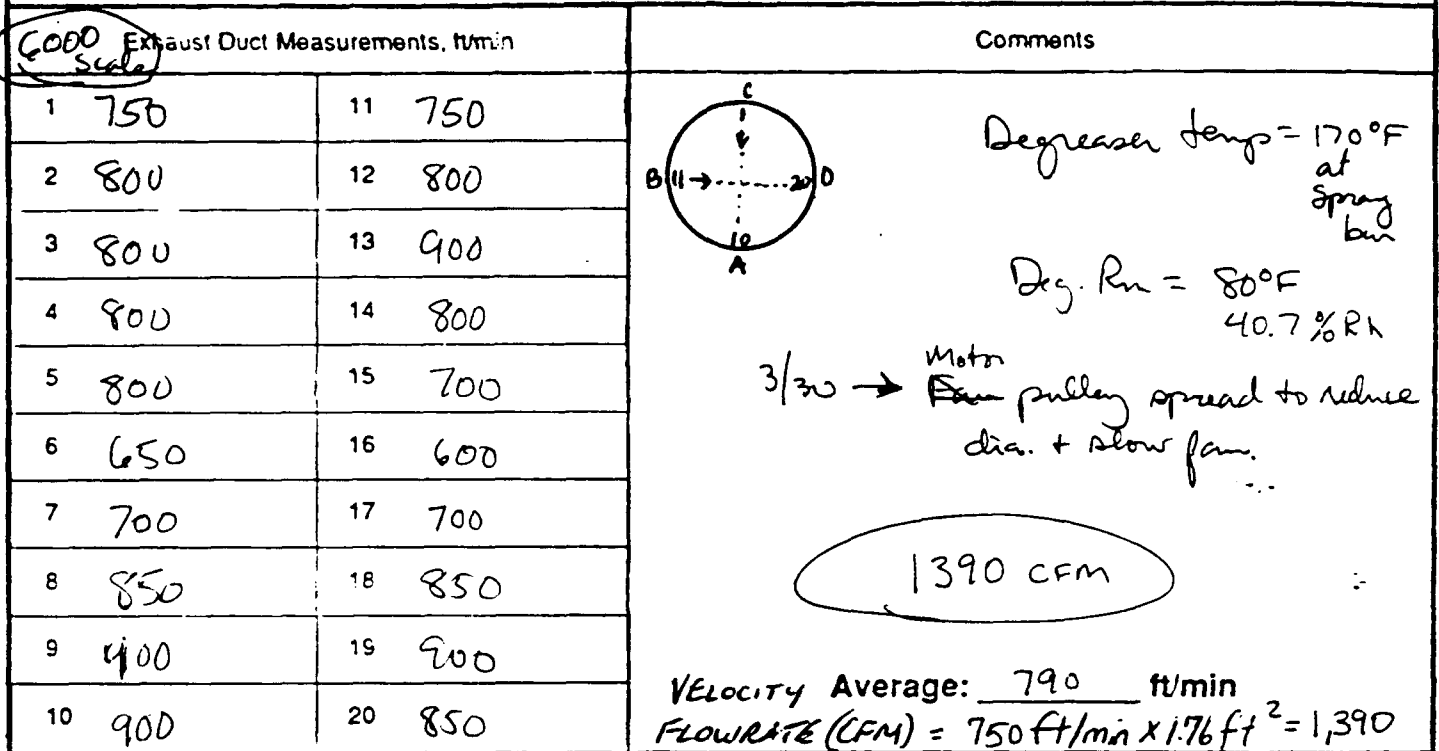 6000 Exhaust Duct Measurements, ft/min
Scale
Comments
1 750 11 750
2 800 12 800
3 800 13 900
4 800 14 800
5 800 15 700
6 650 16 600
7 700 17 700
8 850 18 850
9 900 19 900
10 900 20 850
C
1
B 11 20 D
10
A
Degreaser temp = 170°F
at
Spray
bar
Deg. Rm = 80°F
40.7 % Rh
Motor
3/30 → Fan pulley spread to reduce
dia. + slow fan.
1390 CFM
VELOCITY Average: 790 ft/min
FLOWRATE (CFM) = 750 ft/min x 1.76 ft² = 1,390